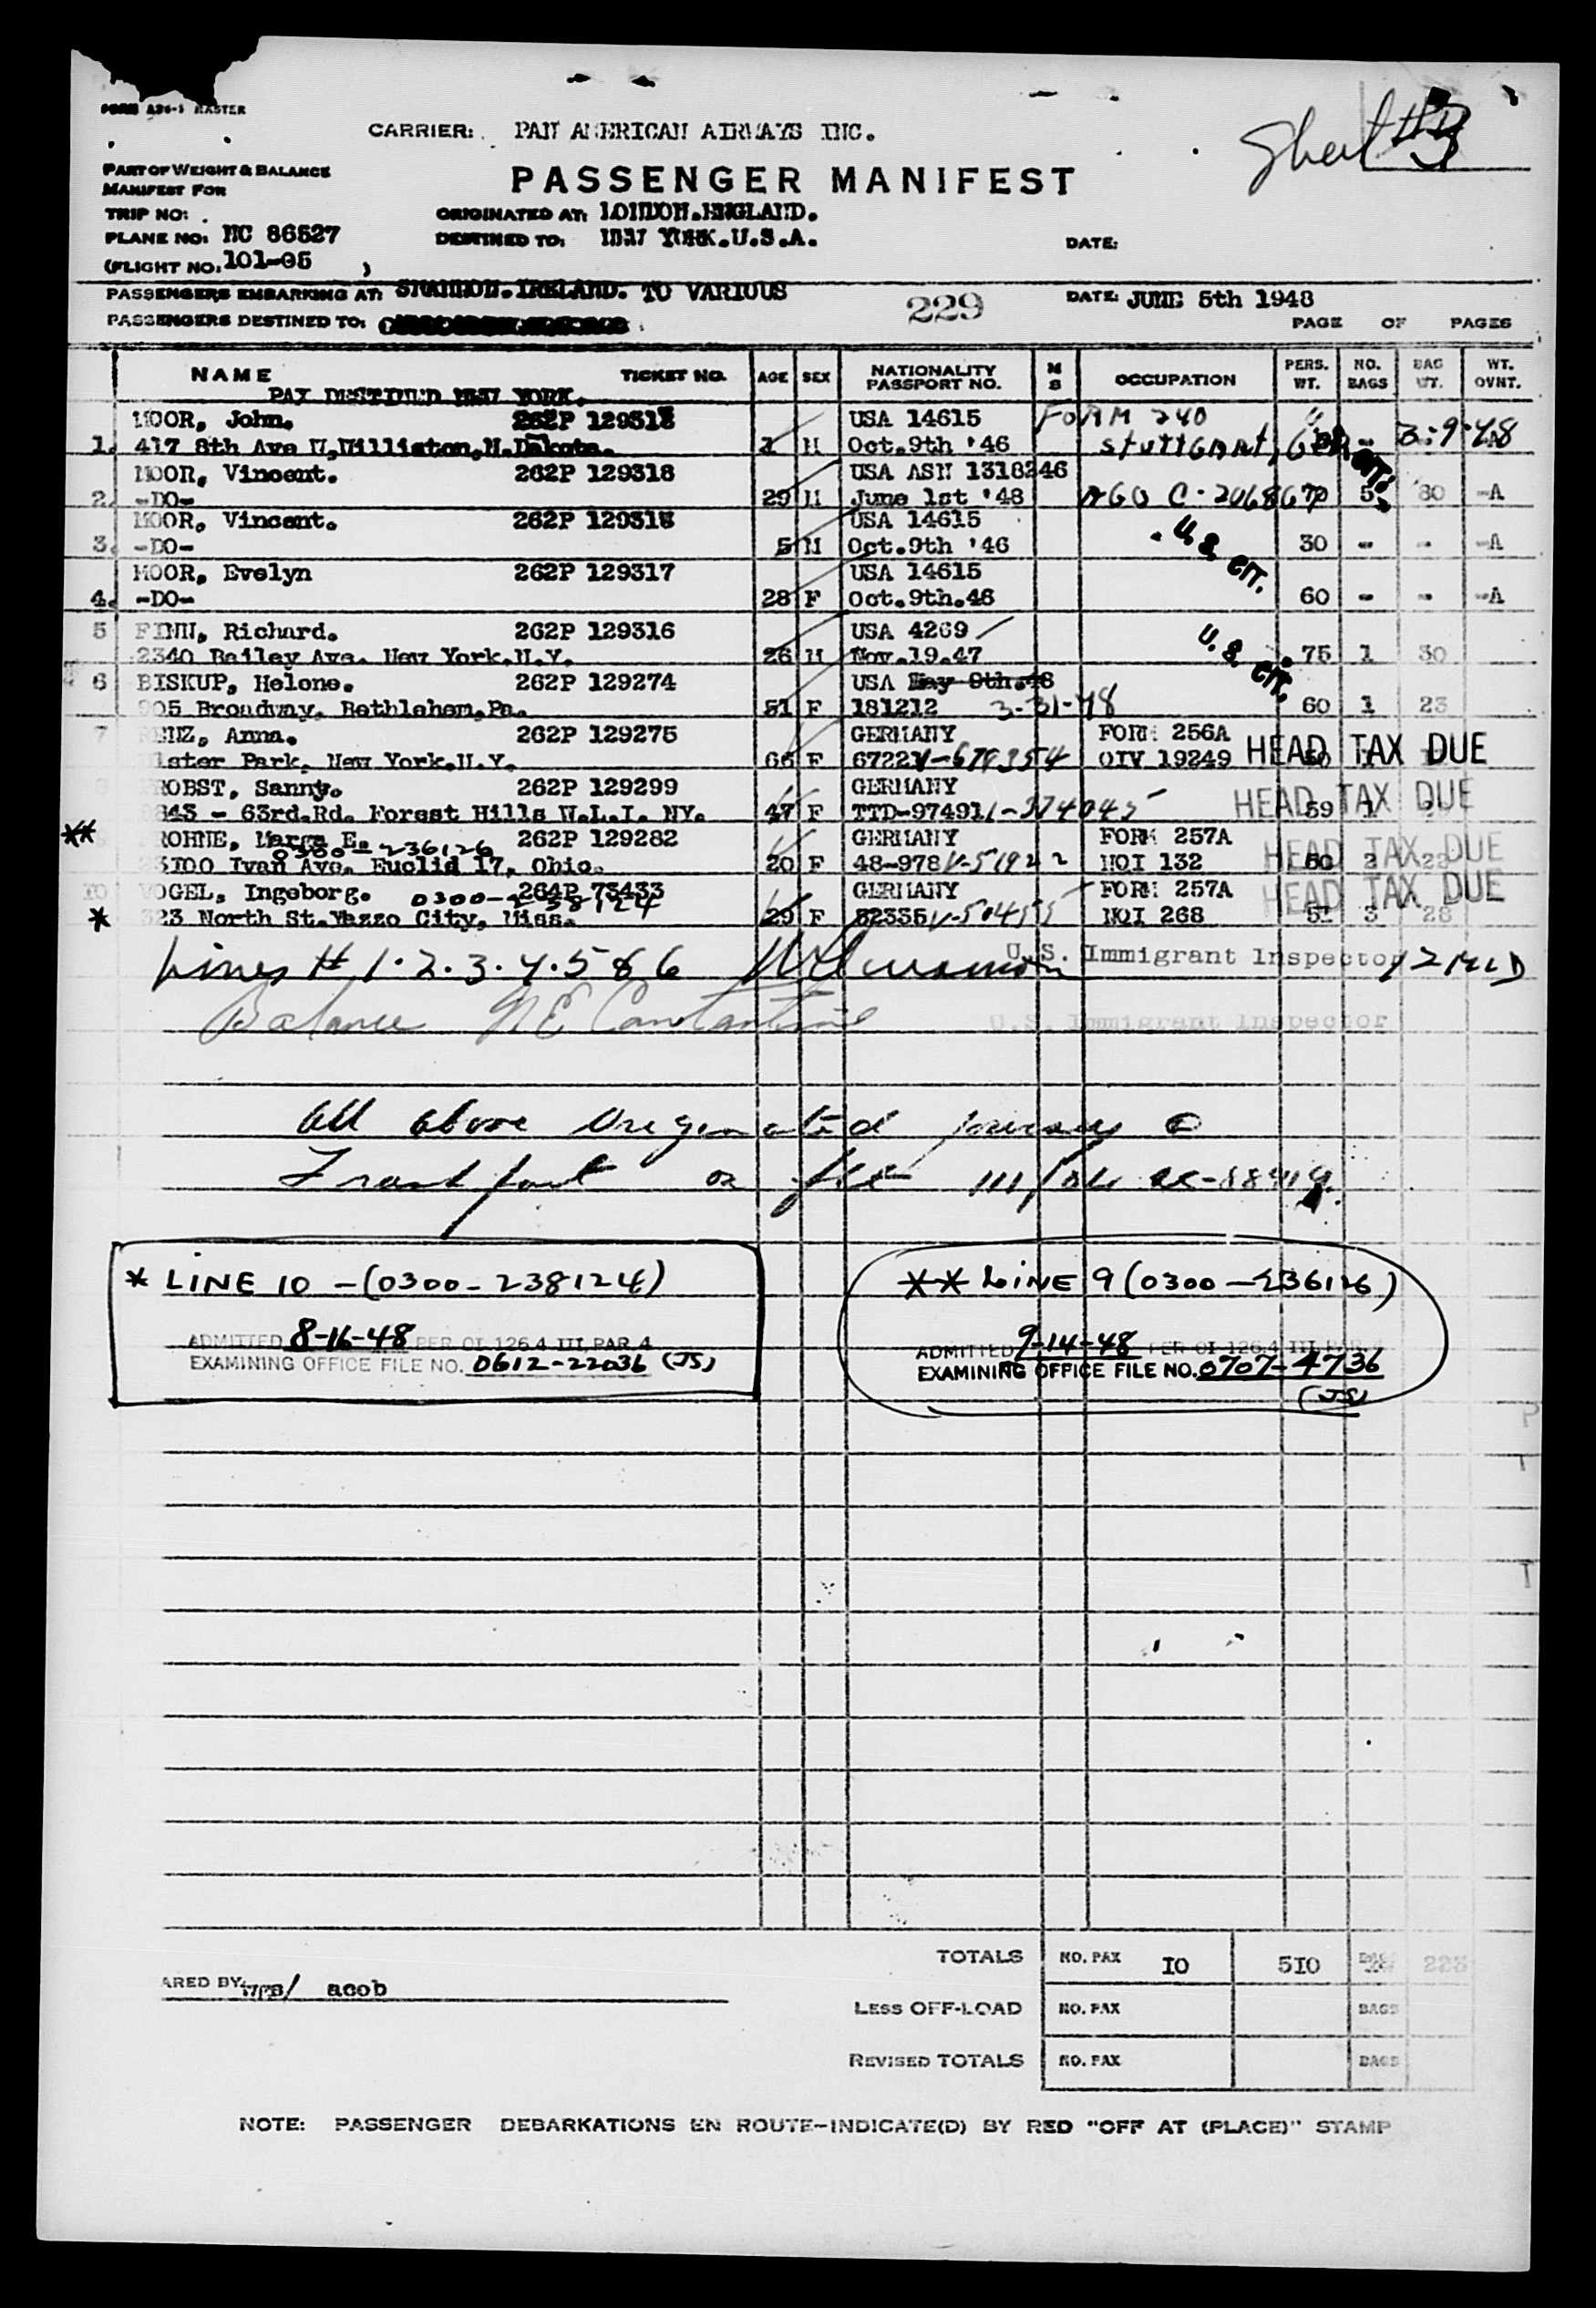 FORM A26-1 MASTER
Sheet #3
CARRIER: PAN AMERICAN AIRWAYS INC.
PART OF WEIGHT & BALANCE
MANIFEST FOR
PASSENGER MANIFEST
TRIP NO:
ORIGINATED AT: LONDON.ENGLAND.
PLANE NO: NC 86527
DESTINED TO: NEW YORK.U.S.A.
DATE:
(FLIGHT NO: 101-05 )
PASSENGERS EMBARKING AT: SHANNON.IRELAND. TO VARIOUS
229
DATE: JUNE 5th 1948
PASSENGERS DESTINED TO:
PAGE OF PAGES
NAME TICKET NO. AGE SEX NATIONALITY PASSPORT NO. M S OCCUPATION PERS. WT. NO. BAGS BAG WT. WT. OVNT.
PAX DESTINED NEW YORK.
MOOR, John. 262P 129318 USA 14615 FORM 240
1. 417 8th Ave W,Williston,N.Dakota. 1 M Oct.9th '46 Stuttgart, Ger. 3-9-48
MOOR, Vincent. 262P 129318 USA ASN 1318246
2. -DO- 29 M June 1st '48 AGO C-206867 70 5 80 -A
U.S. CIT.
MOOR, Vincent. 262P 129318 USA 14615
3. -DO- 5 M Oct.9th '46 30 - - -A
MOOR, Evelyn 262P 129317 USA 14615
4. -DO- 28 F Oct.9th.46 60 - - -A
U.S. CIT.
5 FINN, Richard. 262P 129316 USA 4269
2340 Bailey Ave. New York.N.Y. 26 M Nov.19.47 75 1 30
6 BISKUP, Helene. 262P 129274 USA May 8th.48
905 Broadway, Bethlehem,Pa. 51 F 181212 3-31-48 60 1 23
7 Anna. 262P 129275 GERMANY FORM 256A
Ulster Park, New York.N.Y. 66 F 67221 V-679354 QIV 19249 HEAD TAX DUE
PROBST, Sanny. 262P 129299 GERMANY
63rd.Rd. Forest Hills W.L.I. NY. 47 F TTD-97491 V-374045 59 1 HEAD TAX DUE
** ROHNE, Marga E. 262P 129282 GERMANY FORM 257A
0300-236126
Ivan Ave. Euclid 17, Ohio. 20 F 48-978 V-51922 NQI 132 60 2 22 HEAD TAX DUE
10 VOGEL, Ingeborg. 264P 73433 GERMANY FORM 257A
0300-238124
* 323 North St.Yazoo City, Miss. 29 F 52335 V-50455 NQI 268 51 3 28 HEAD TAX DUE
Lines # 1.2.3.4.5 & 6 U.S. Immigrant Inspector
Balance N E Constantine U.S. Immigrant Inspector
All above originated journey @
Frankfurt on flt 111/04
* LINE 10 - (0300-238124)
ADMITTED 8-16-48 PER OI 126.4 III, PAR. 4
EXAMINING OFFICE FILE NO. 0612-22036 (JS)
** LINE 9 (0300-236126)
ADMITTED 9-14-48 PER OI 126.4 III PAR. 4
EXAMINING OFFICE FILE NO. 0707-4736
(JS)
TOTALS NO. PAX 10 510 223
ARED BY: / acob
LESS OFF-LOAD NO. PAX BAGS
REVISED TOTALS NO. PAX BAGS
NOTE: PASSENGER DEBARKATIONS EN ROUTE-INDICATE(D) BY RED "OFF AT (PLACE)" STAMP